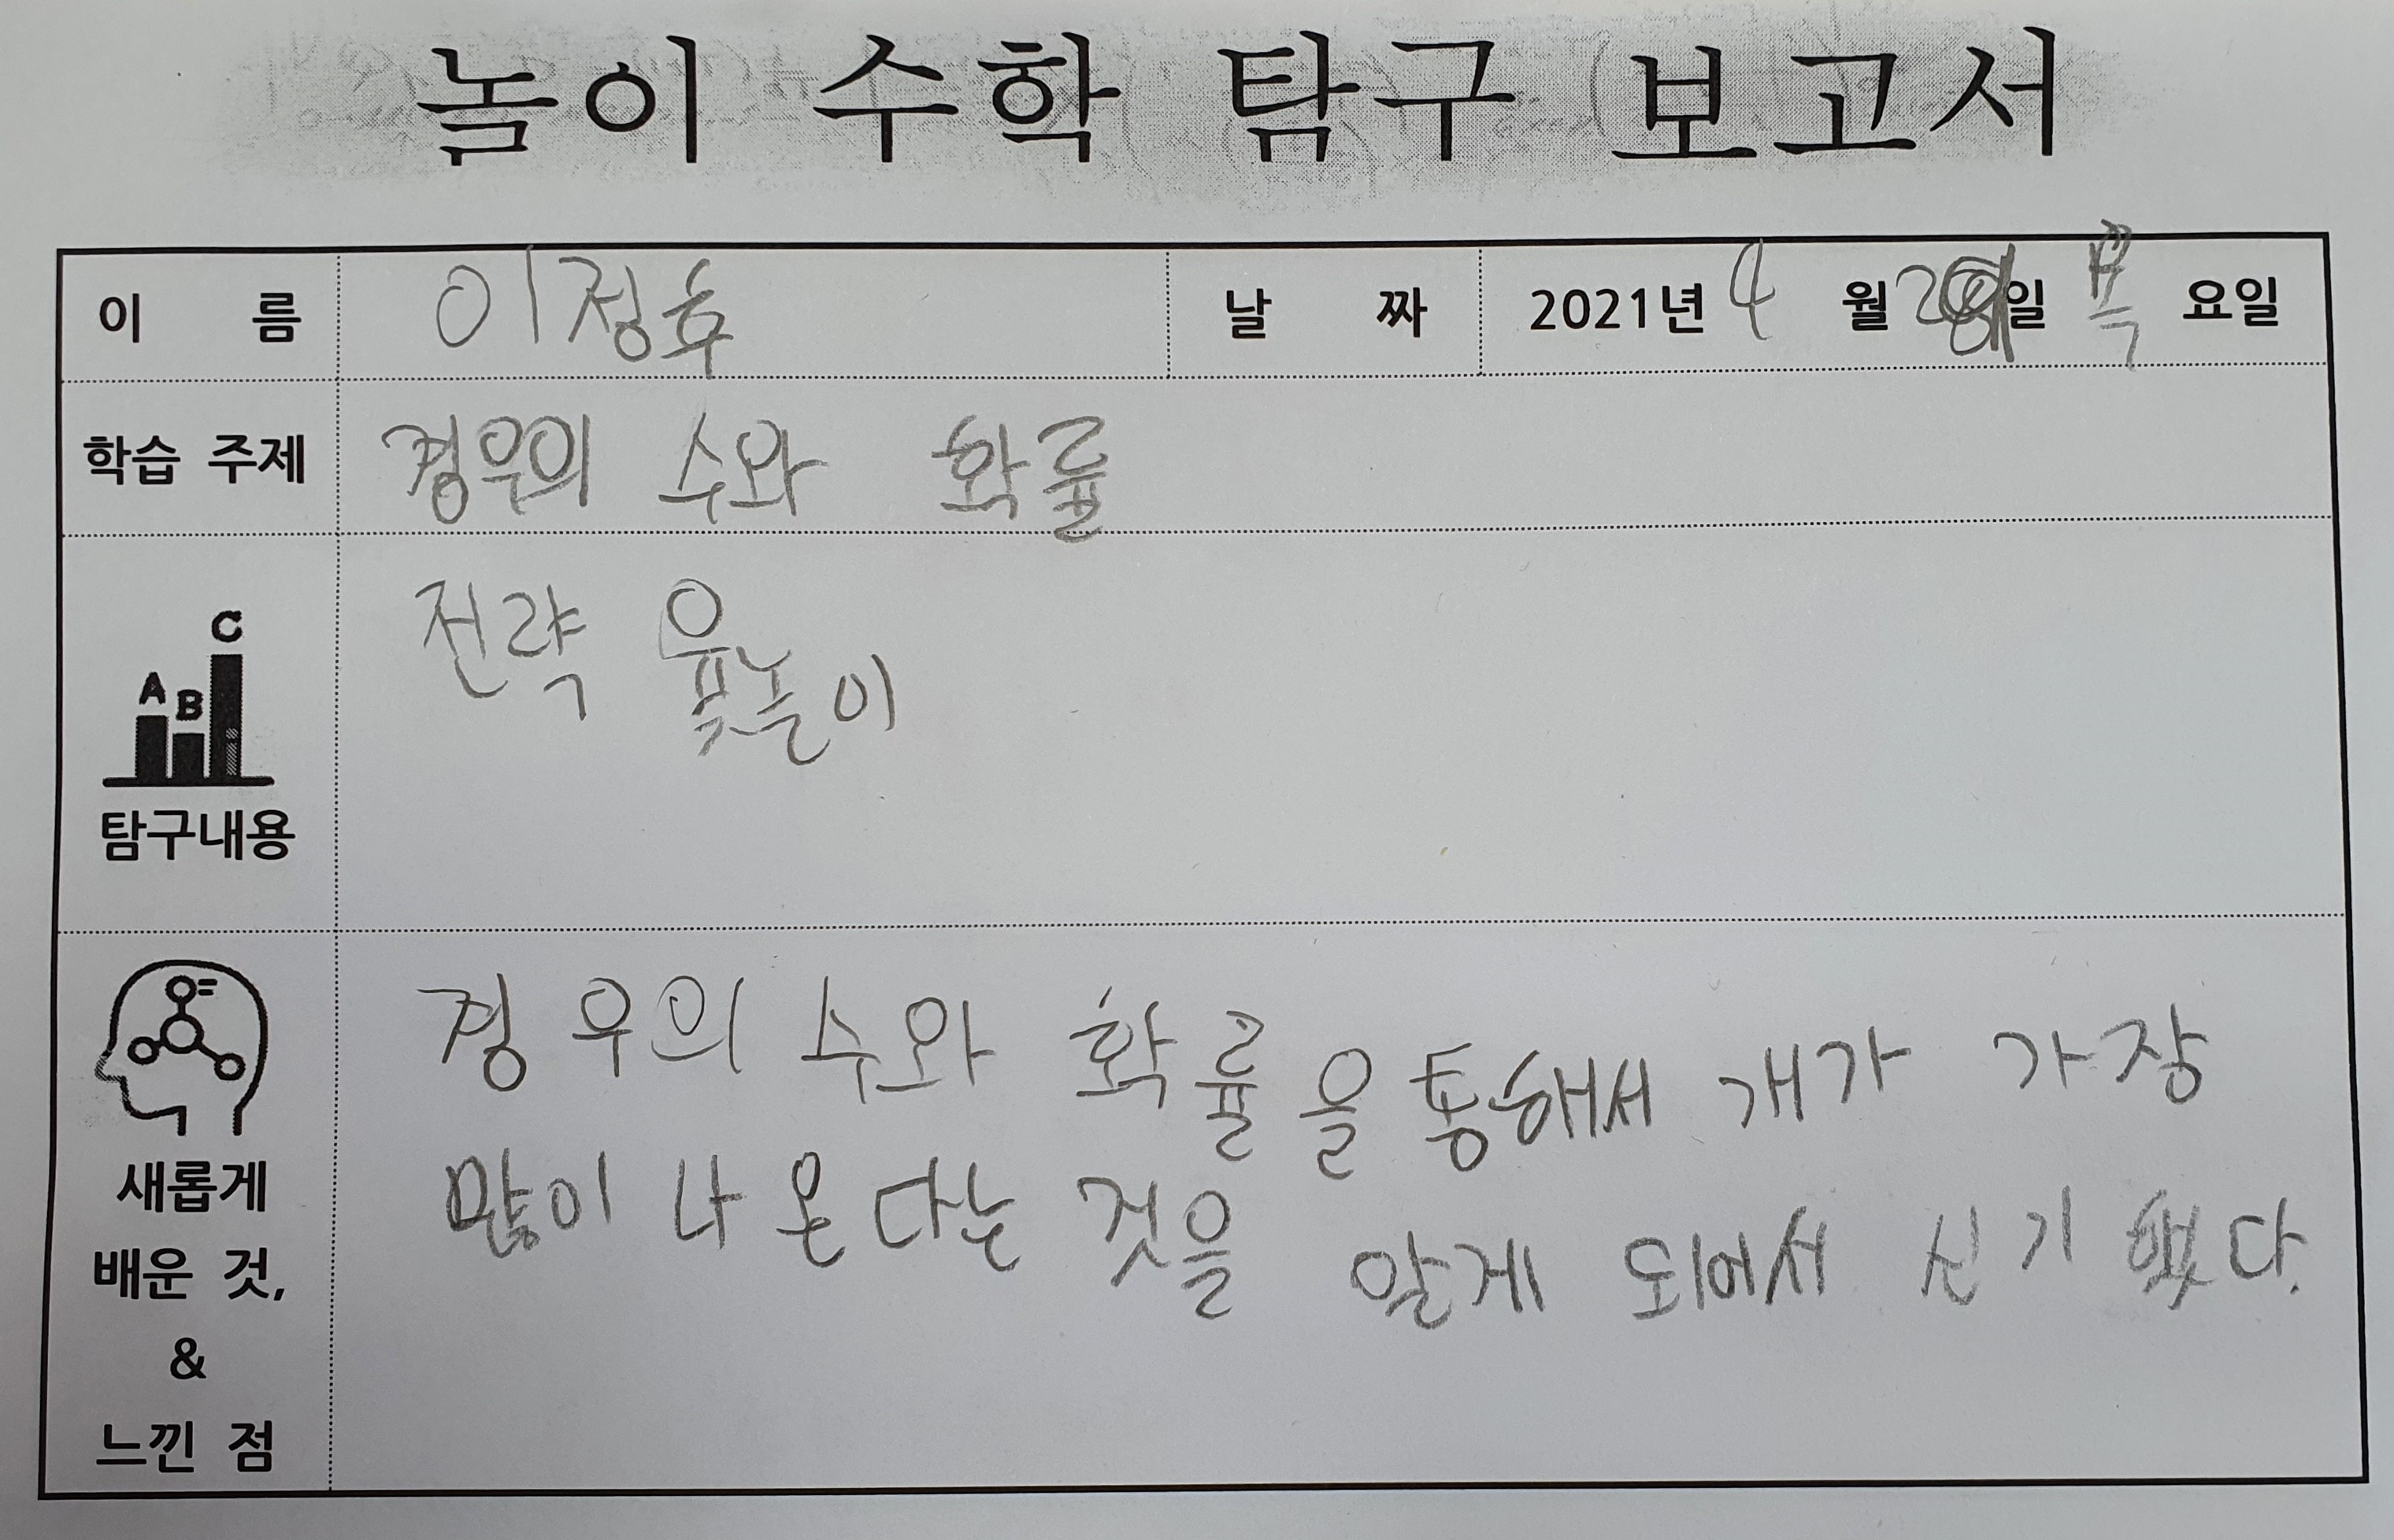 놀이 수학 탐구 보고서
이 름 이정호 날 짜 2021년 4 월 일 목 요일
학습 주제 경우의 수와 확률
C
A B
전략 윷놀이
탐구내용
경우의 수와 확률을 통해서 개가 가장
많이 나온다는 것을 알게 되어서 신기했다.
새롭게
배운 것,
&
느낀 점